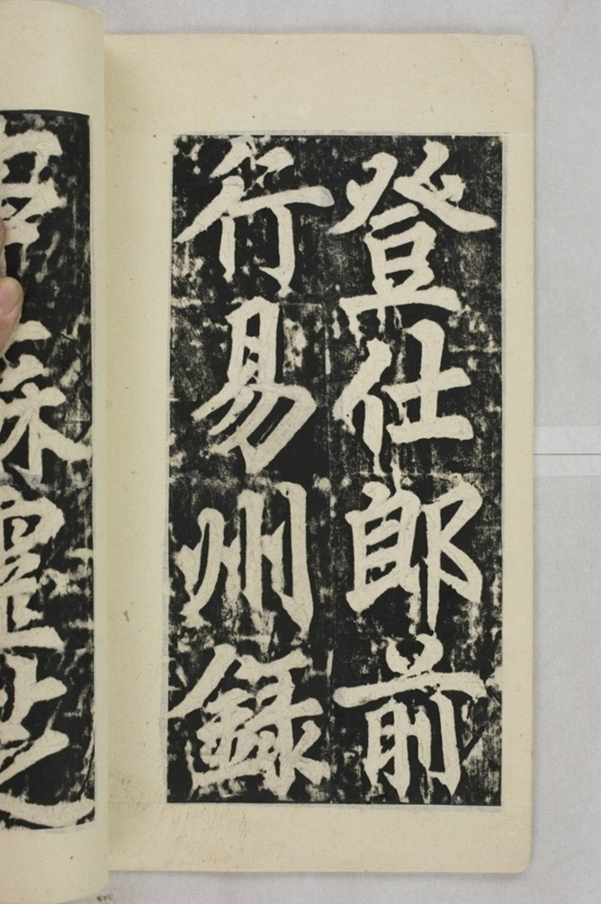 登仕郎前
行易州録